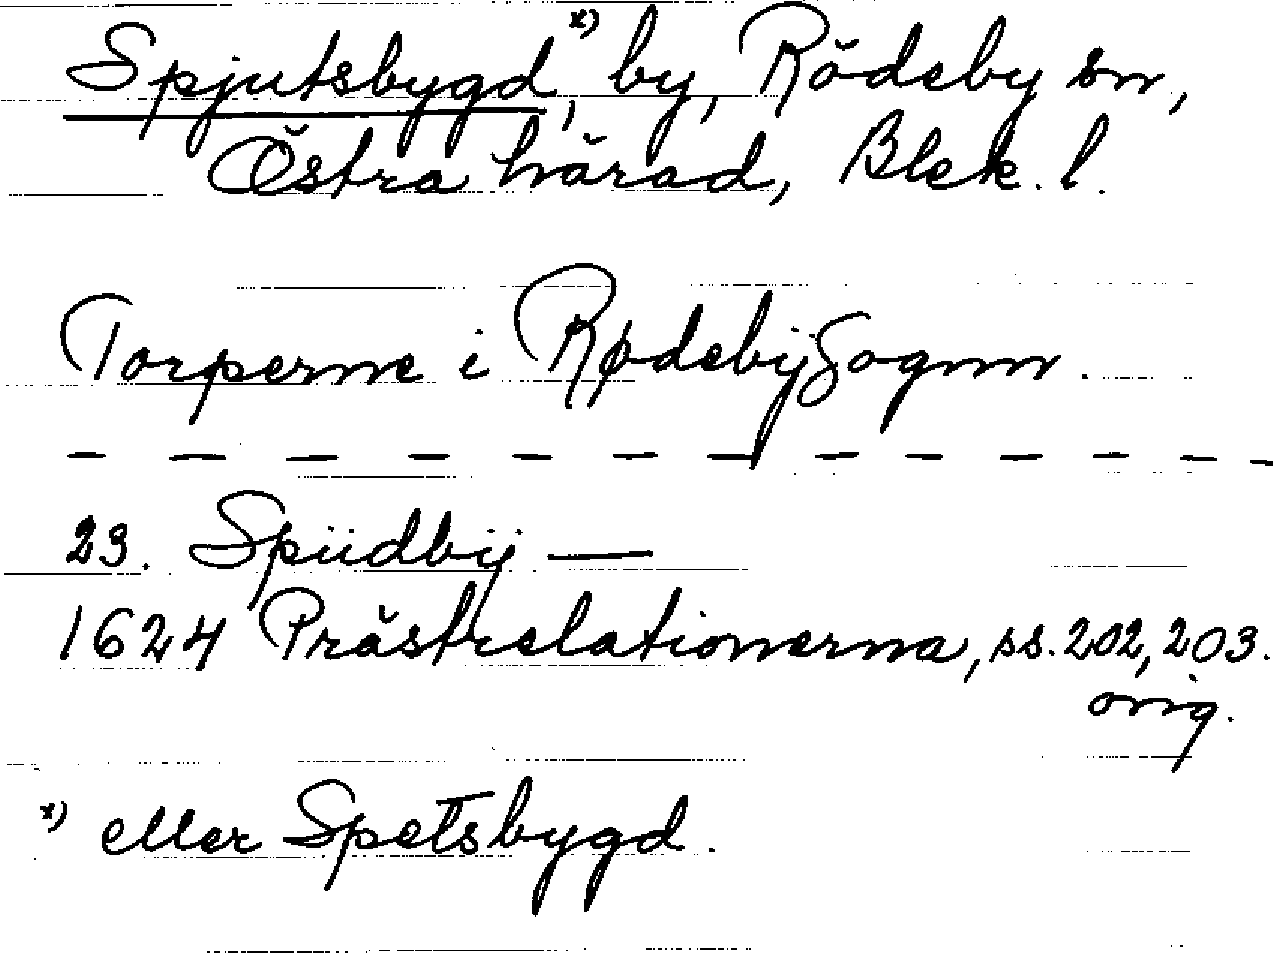 Spjutsbygd,ˣ⁾ by, Rödeby sn,
Östra härad, Blek. l.
Torperne i Rødebÿ Sognn.
— — — — — — — — — — — —
23. Spiidbÿ —
1624 Prästrelationerna, ss. 202, 203.
orig.
ˣ⁾ eller Spetsbygd.